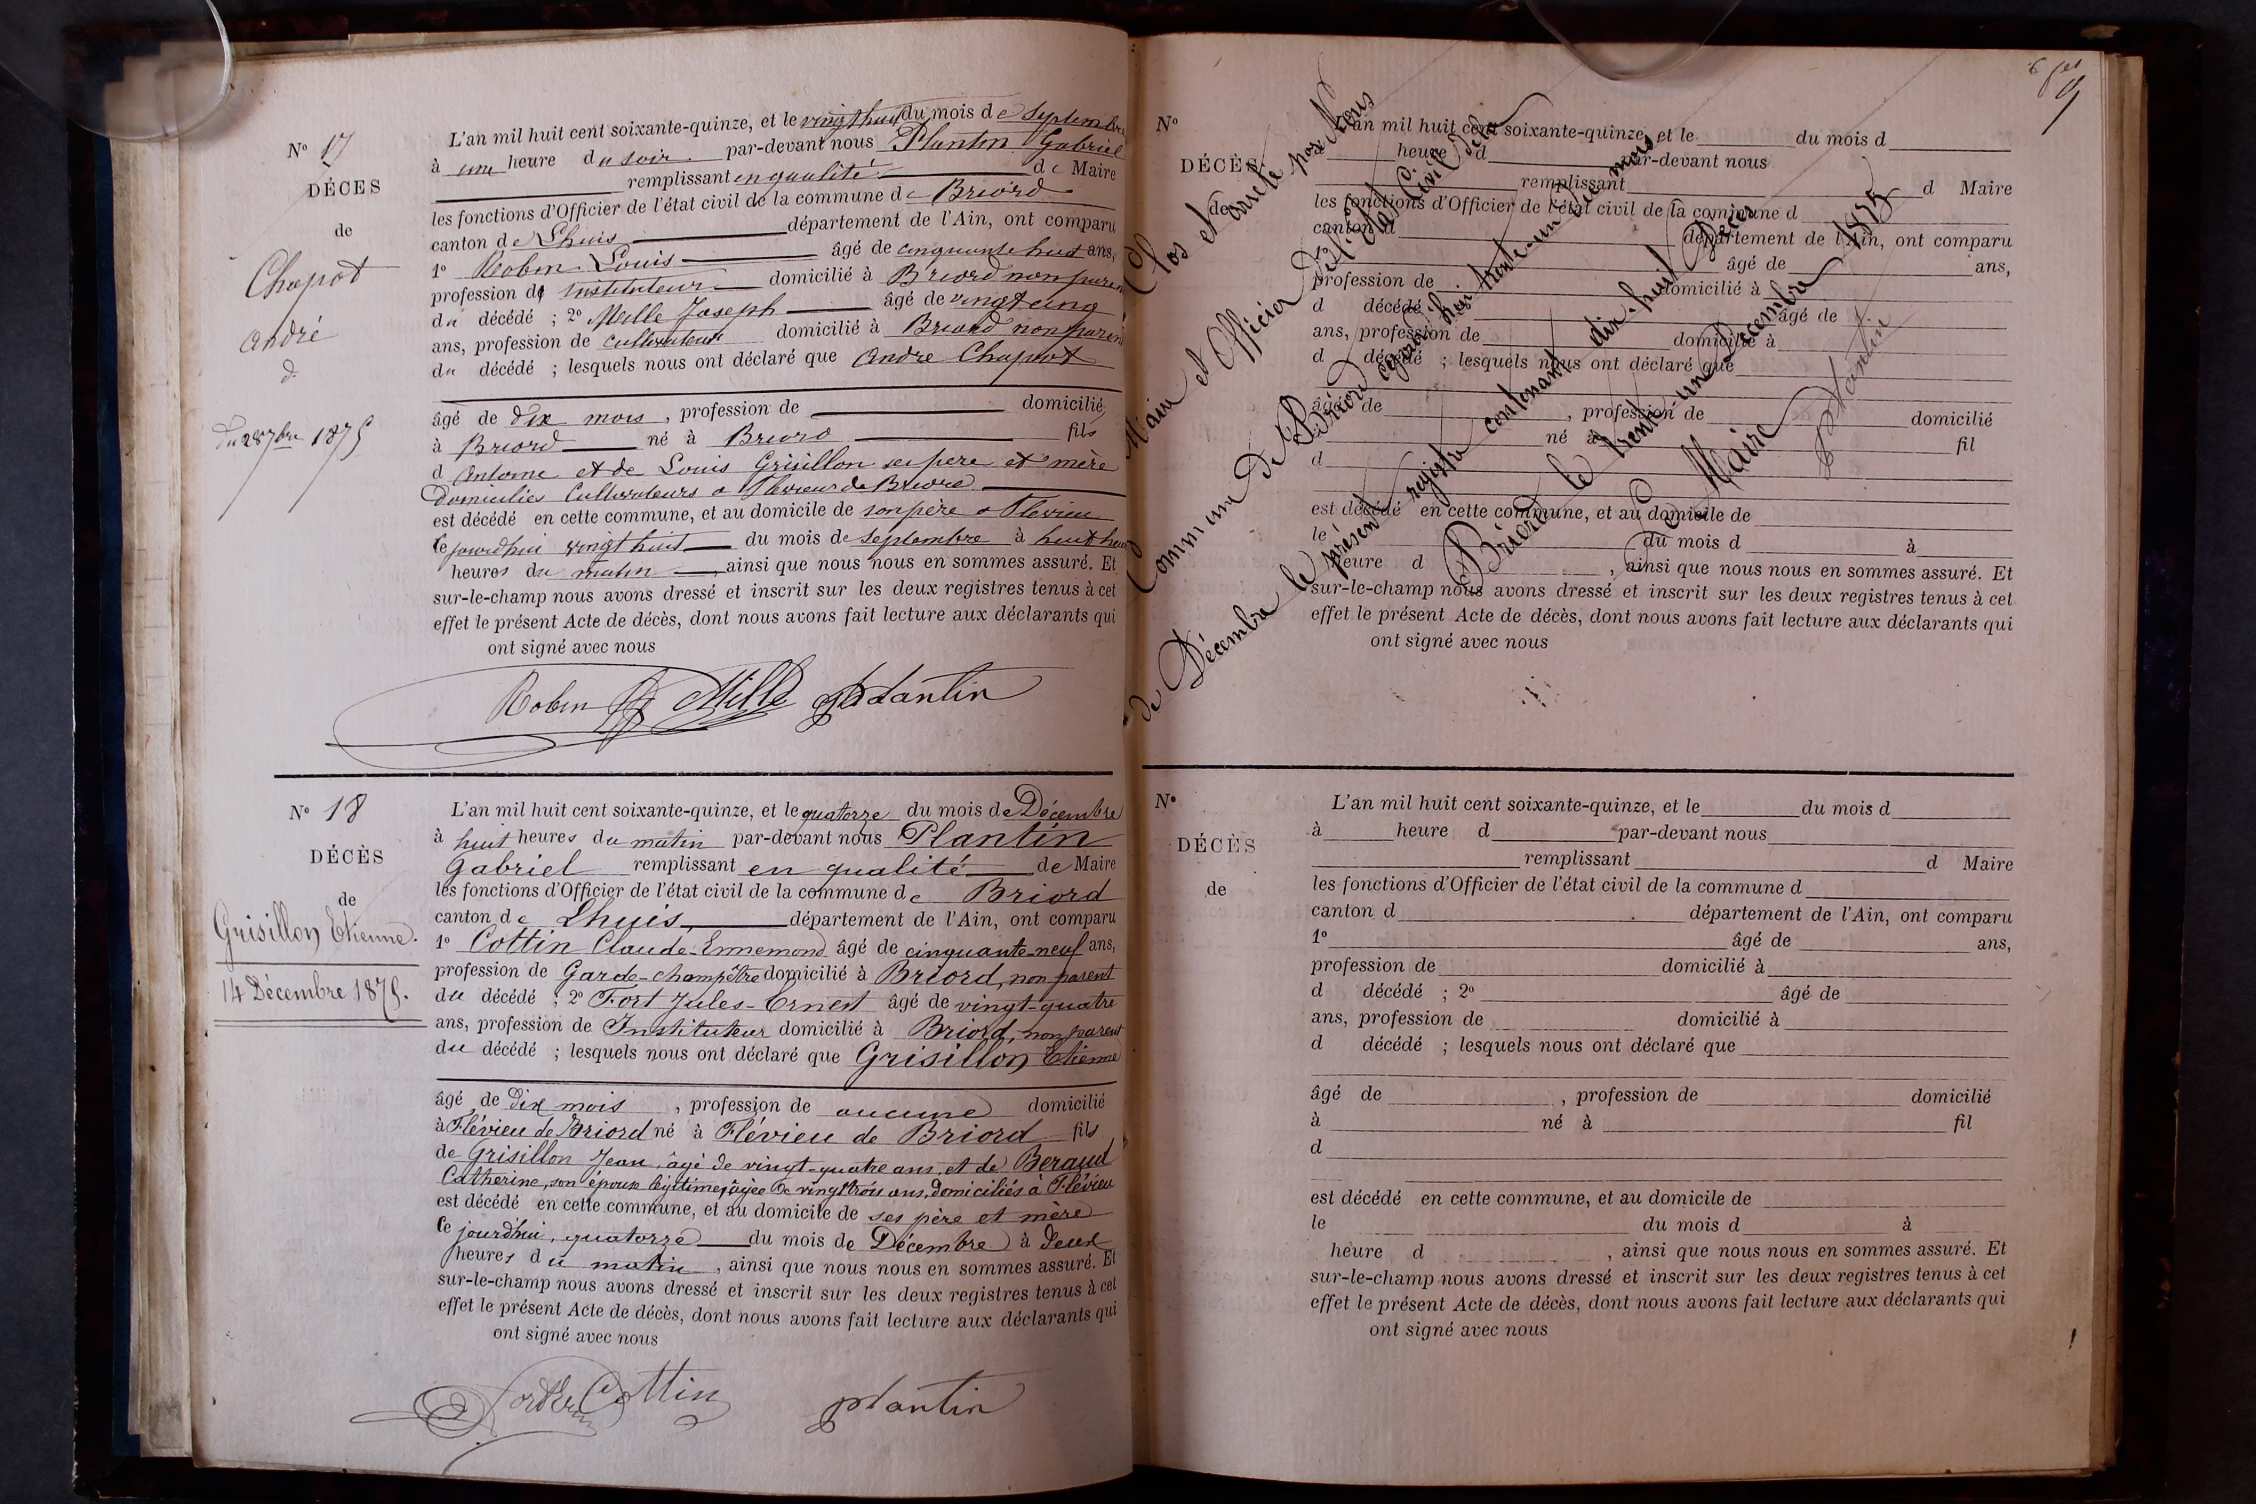 N° 17
DÉCES
de
Chapot
André
d.
du 28 7bre 1875
L'an mil huit cent soixante-quinze, et le vingt huit du mois de Septembre
à une heure du soir par-devant nous Plantin Gabriel
remplissant en qualité de Maire
les fonctions d'Officier de l'état civil de la commune de Briord
canton de Lhuis département de l'Ain, ont comparu
1° Robin Louis âgé de cinquante huit ans,
profession de instituteur domicilié à Briord non parent
du décédé ; 2° Mille Joseph âgé de vingt cinq
ans, profession de cultivateur domicilié à Briord non parent
du décédé ; lesquels nous ont déclaré que André Chapot
âgé de dix mois, profession de domicilié
à Briord né à Briord fils
d Antoine et de Louis Grisillon ses pere et mère
Domiciliés Cultivateurs a Flevieu de Briord
est décédé en cette commune, et au domicile de son père a Flevieu
le jourdhui vingt huit du mois de septembre à huit heur
heures du matin, ainsi que nous nous en sommes assuré. Et
sur-le-champ nous avons dressé et inscrit sur les deux registres tenus à cet
effet le présent Acte de décès, dont nous avons fait lecture aux déclarants qui
ont signé avec nous
Robin Mille Plantin
N° 18
DÉCÈS
de
Grisillon Etienne.
14 Décembre 1875.
L'an mil huit cent soixante-quinze, et le quatorze du mois de Décembre
à huit heures du matin par-devant nous Plantin
Gabriel remplissant en qualité de Maire
les fonctions d'Officier de l'état civil de la commune de Briord
canton de Lhuis, département de l'Ain, ont comparu
1° Cottin Claude-Ennemond âgé de cinquante-neuf ans,
profession de Garde-champêtre domicilié à Briord, non parent
du décédé ; 2° Fort Jules-Ernest âgé de vingt-quatre
ans, profession de Instituteur domicilié à Briord, non parent
du décédé ; lesquels nous ont déclaré que Grisillon Etienne
âgé de Dix mois, profession de aucune domicilié
à Flévieu de Briord né à Flévieu de Briord fils
de Grisillon Jean, âgé de vingt-quatre ans, et de Beraud
Catherine, son épouse légitime, âgée de vingt trois ans, domiciliés à Flévieu
est décédé en cette commune, et au domicile de ses père et mère
le jourdhui, quatorze du mois de Décembre à deux
heures du matin, ainsi que nous nous en sommes assuré. Et
sur-le-champ nous avons dressé et inscrit sur les deux registres tenus à cet
effet le présent Acte de décès, dont nous avons fait lecture aux déclarants qui
ont signé avec nous
Cottin Plantin
9
N°
DÉCÈS
de
L'an mil huit cent soixante-quinze, et le du mois d
à heure d par-devant nous
remplissant d Maire
les fonctions d'Officier de l'état civil de la commune d
canton d département de l'Ain, ont comparu
1° âgé de ans,
profession de domicilié à
d décédé ; 2° âgé de
ans, profession de domicilié à
d décédé ; lesquels nous ont déclaré que
âgé de , profession de domicilié
à né à fil
d
est décédé en cette commune, et au domicile de
le du mois d à
heure d , ainsi que nous nous en sommes assuré. Et
sur-le-champ nous avons dressé et inscrit sur les deux registres tenus à cet
effet le présent Acte de décès, dont nous avons fait lecture aux déclarants qui
ont signé avec nous
Clos et arrêté par Nous
Maire et Officier de l'état Civil de la
Commune de Briord cejourd'hui trente-un du mois
de Décembre le présent registre contenant dix-huit Décès
Briord le trente-un Décembre 1875
Le Maire
Plantin
N°
DÉCÈS
de
L'an mil huit cent soixante-quinze, et le du mois d
à heure d par-devant nous
remplissant d Maire
les fonctions d'Officier de l'état civil de la commune d
canton d département de l'Ain, ont comparu
1° âgé de ans,
profession de domicilié à
d décédé ; 2° âgé de
ans, profession de domicilié à
d décédé ; lesquels nous ont déclaré que
âgé de , profession de domicilié
à né à fil
d
est décédé en cette commune, et au domicile de
le du mois d à
heure d , ainsi que nous nous en sommes assuré. Et
sur-le-champ nous avons dressé et inscrit sur les deux registres tenus à cet
effet le présent Acte de décès, dont nous avons fait lecture aux déclarants qui
ont signé avec nous